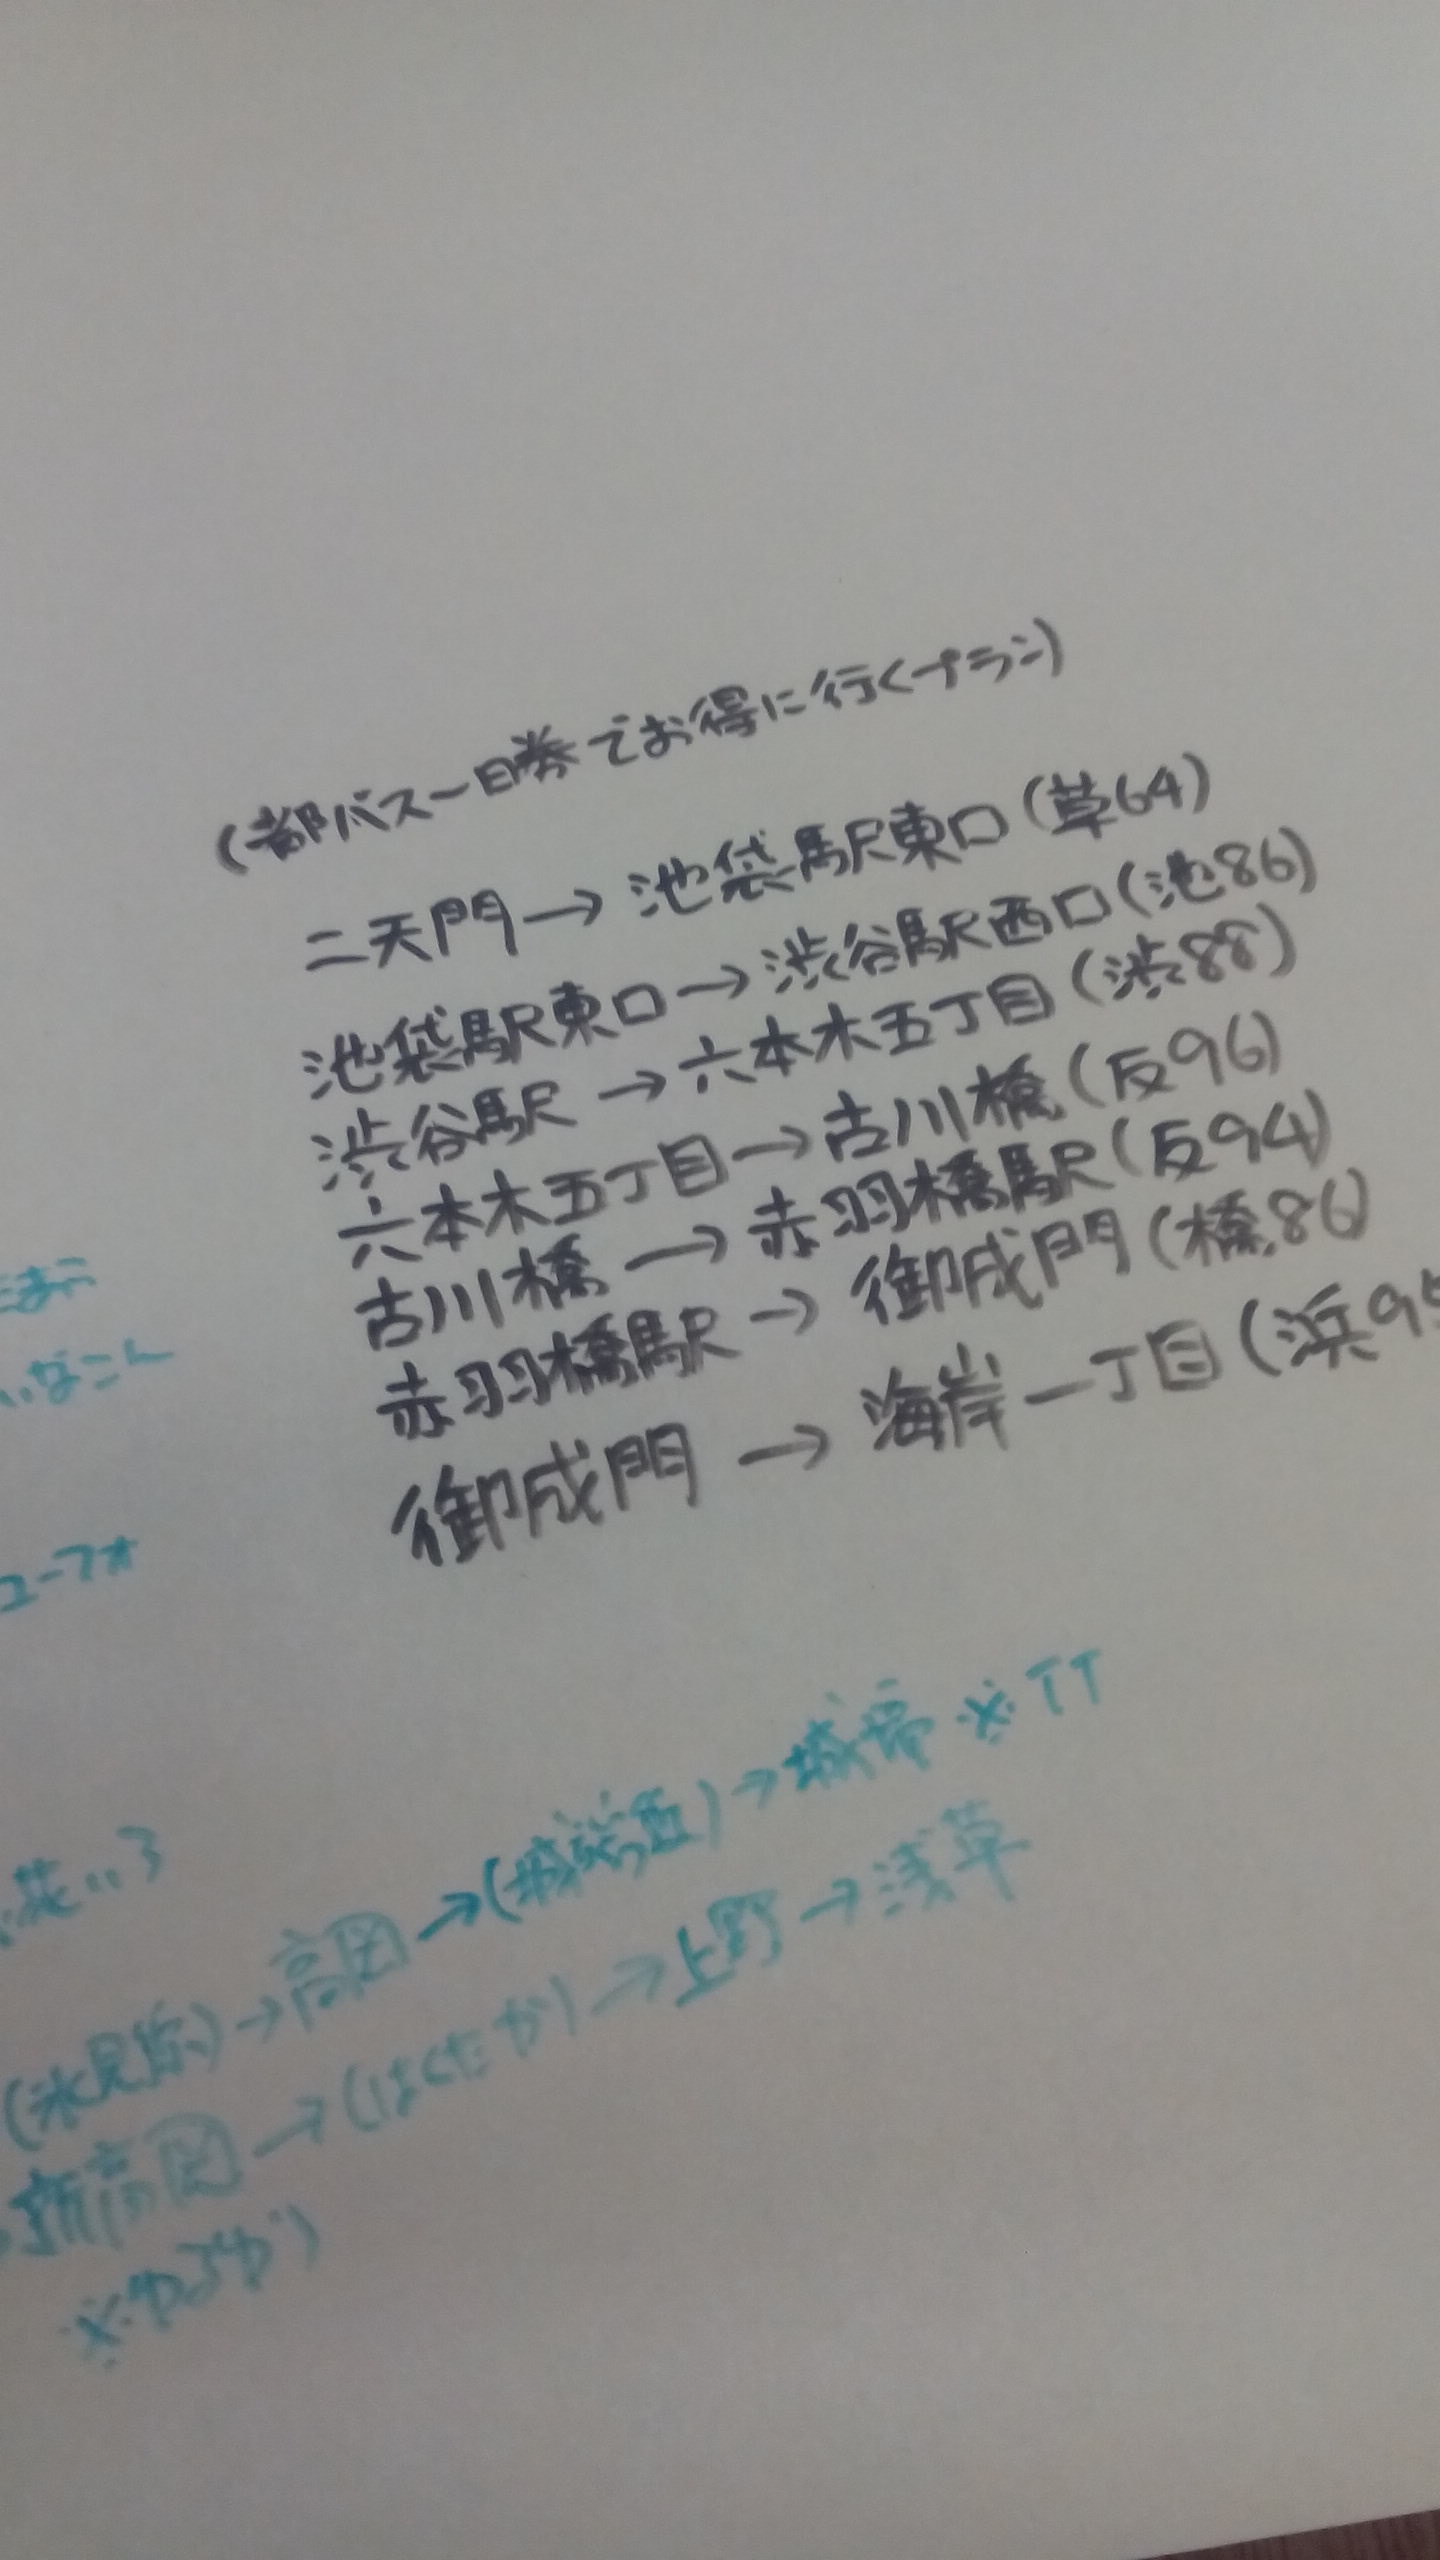 (都バス一日券でお得に行くプラン)
二天門→池袋駅東口(草64)
池袋駅東口→渋谷駅西口(池86)
渋谷駅→六本木五丁目(渋88)
六本木五丁目→古川橋(反96)
古川橋→赤羽橋駅(反94)
赤羽橋駅→御成門(橋86)
御成門→海岸一丁目(浜95
なこん
ユーフォ
花いろ
(氷見線)→高岡→(城端線)→城端 ※TT
新高岡→(はくたか)→上野→浅草